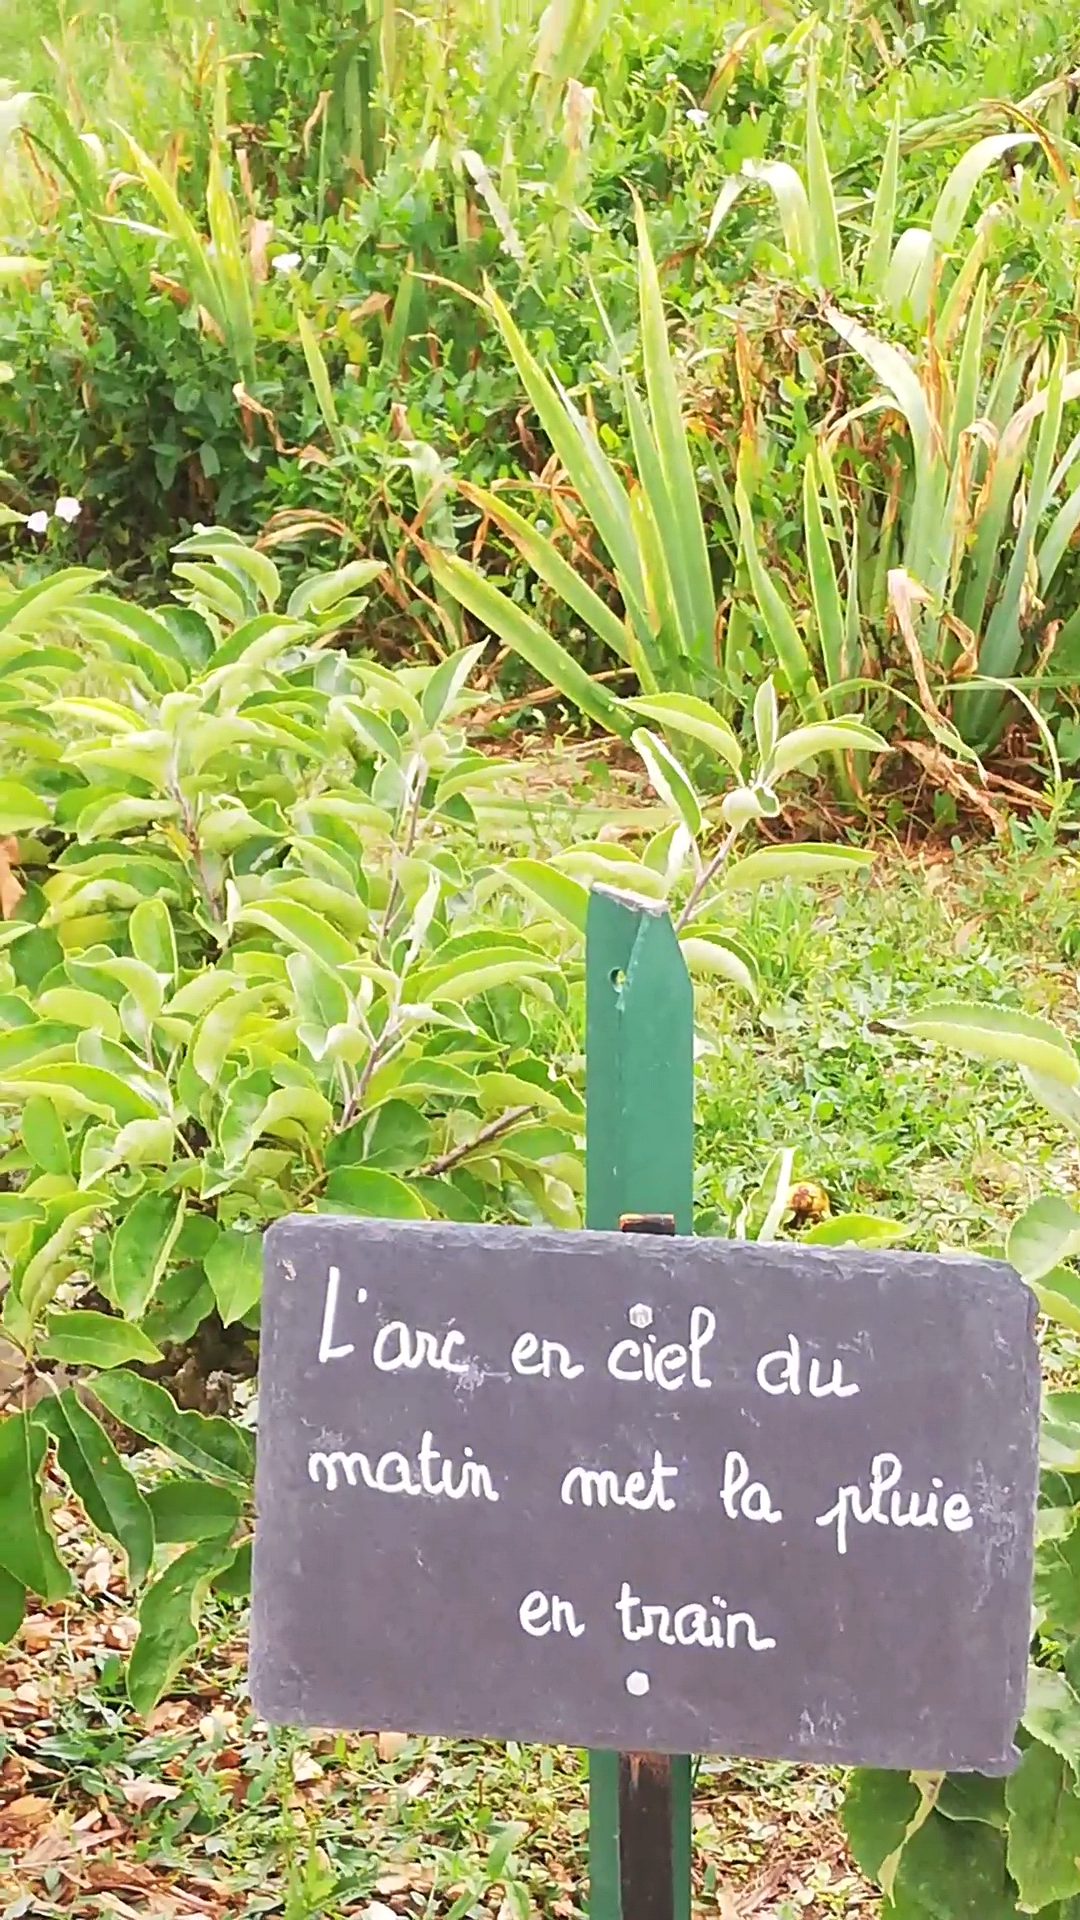 L'arc en ciel du
matin met la pluie
en train